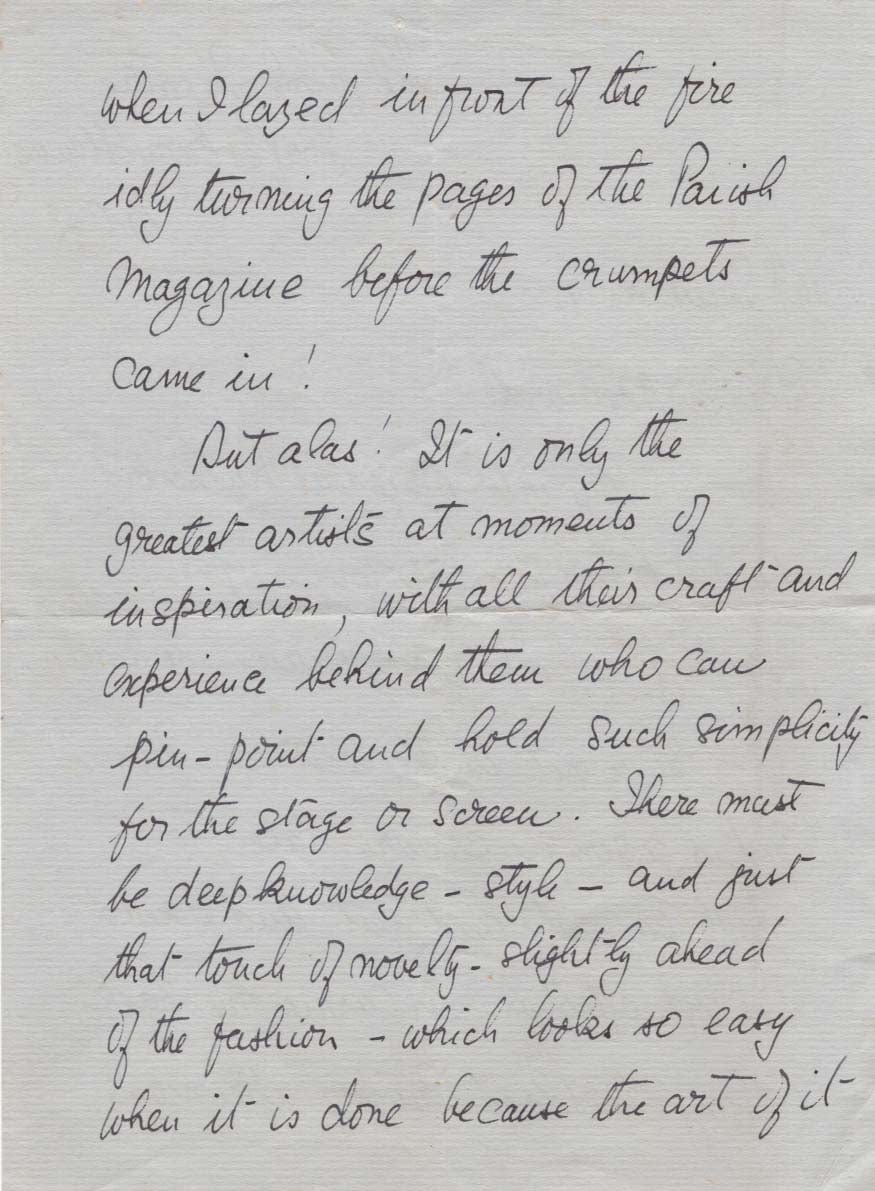 when I lazed in front of the fire
idly turning the pages of the Parish
Magazine before the crumpets
came in!
But alas! It is only the
greatest artists at moments of
inspiration, with all their craft and
experience behind them who can
pin-point and hold such simplicity
for the stage or screen. There must
be deep knowledge - style - and just
that touch of novelty - slightly ahead
of the fashion - which looks so easy
when it is done because the art of it